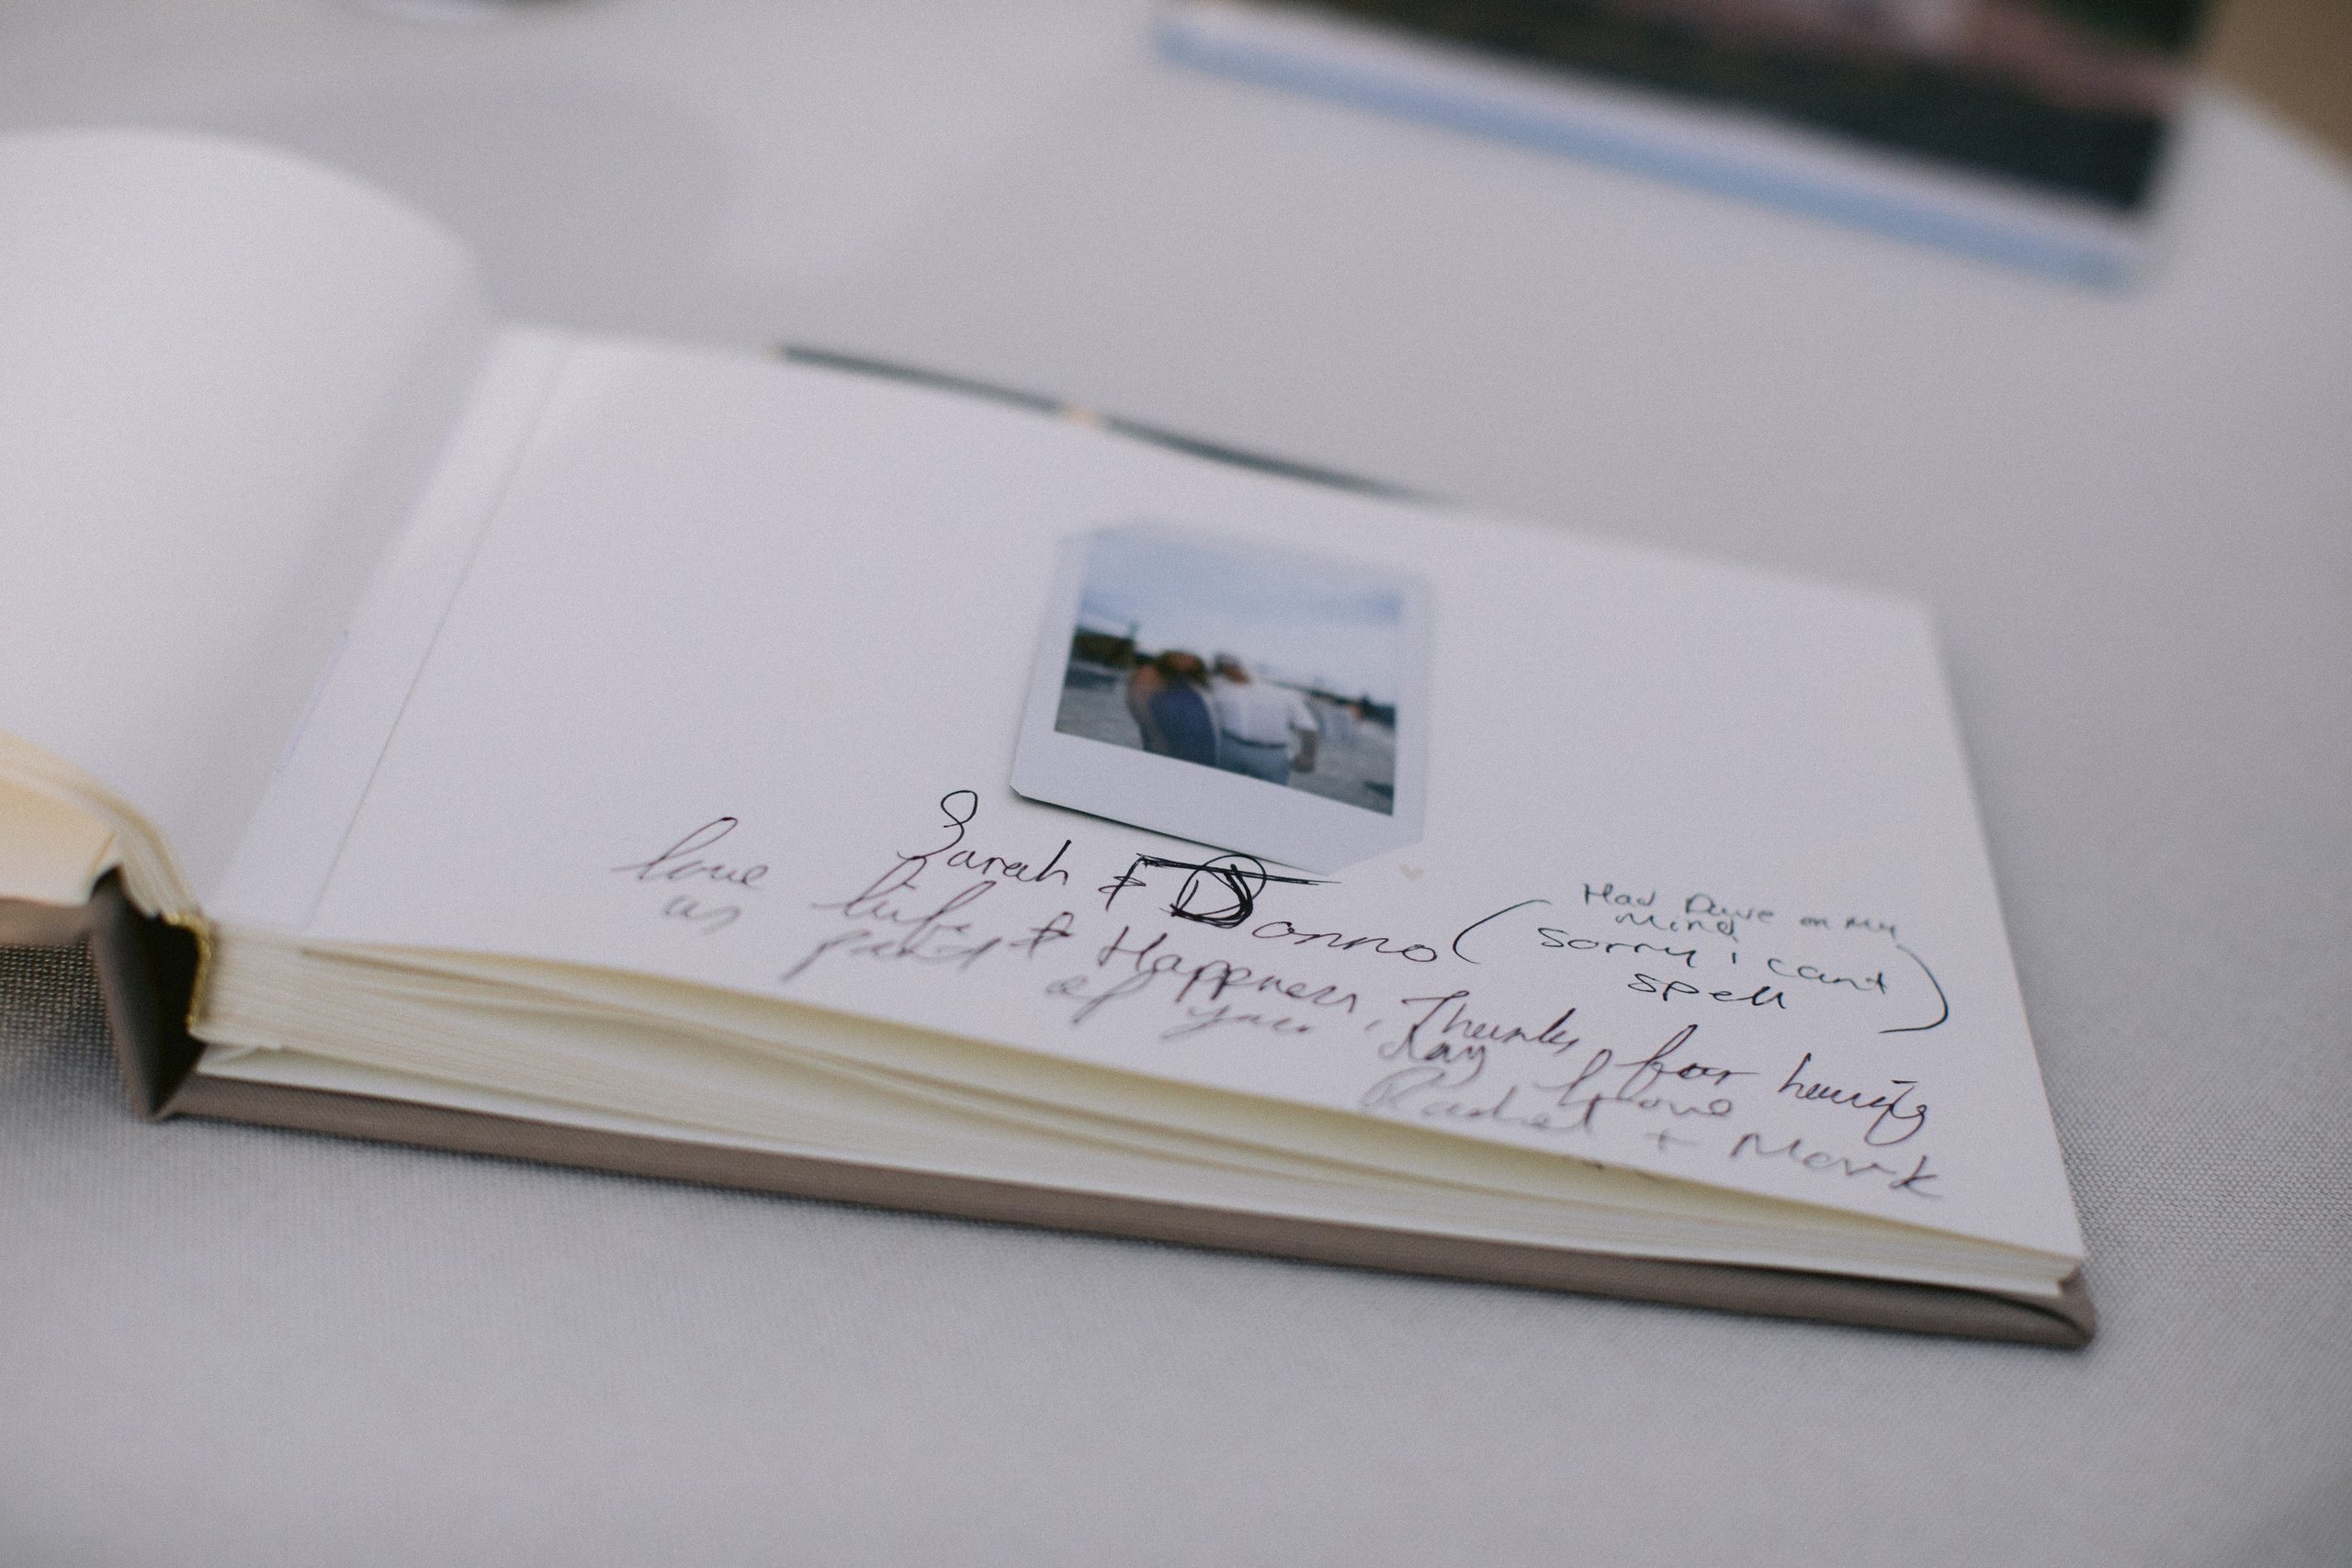 Sarah & Donno
(Had Dave on my
mind,
sorry i cant
spell)
love life & Happness, Thanks for having
us part of your day Love
Rachel + Mark